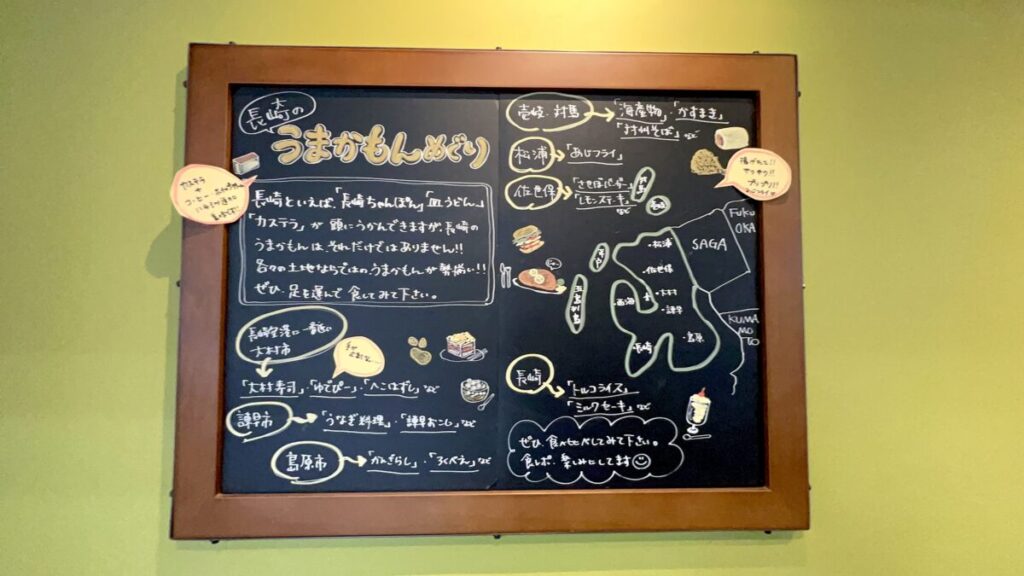 長崎の
うまかもんめぐり
カステラ
+
コーヒー
長崎といえば、「長崎ちゃんぽん」「皿うどん」、
「カステラ」が頭にうかんできますが、長崎の
うまかもんは、それだけではありません!!
各々の土地ならではのうまかもんが勢揃い!!
ぜひ、足を運んで食してみて下さい。
長崎空港に一番近い
大村市
「大村寿司」・「ゆでぴー」・「へこはずし」など
諫早市
「うなぎ料理」・「諫早おこし」など
島原市
「かんざらし」・「ろくべえ」など
壱岐・対馬
「海産物」・「かすまき」
「対州そば」など
松浦
「あじフライ」
佐世保
「させぼバーガー」
「レモンステーキ」など
揚げたて!!
サクサク!!
プリップリ!!
FUKU
OKA
SAGA
KUMA
MOTO
・松浦
・佐世保
西海
・大村
・諫早
・島原
・長崎
五島列島
長崎
「トルコライス」
「ミルクセーキ」など
ぜひ、食べ比べしてみて下さい。
食レポ、楽しみにしてます